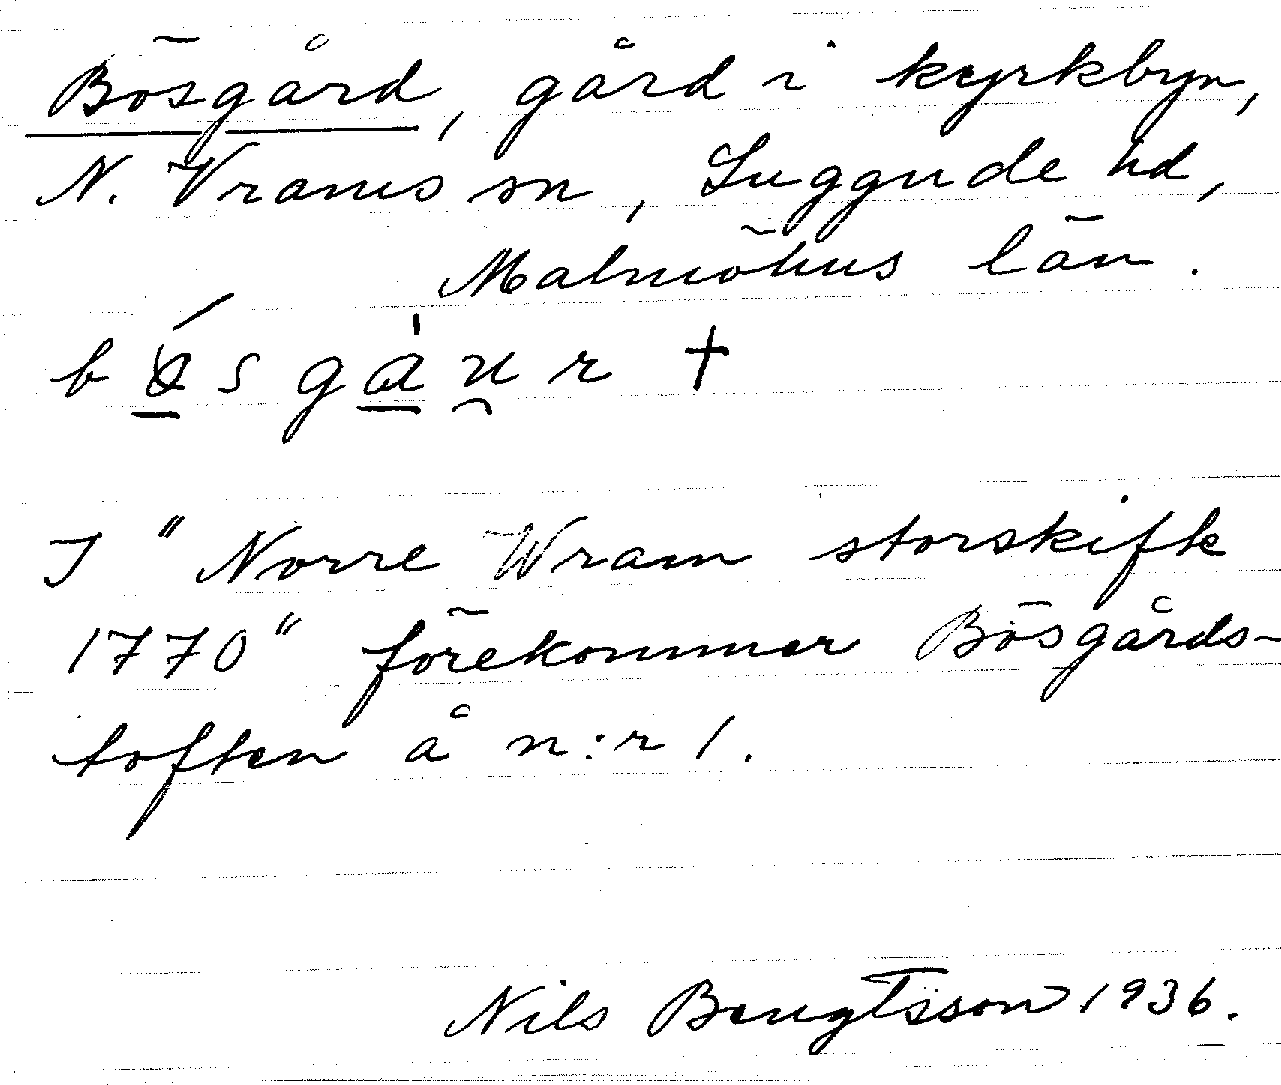 Bösgård, gård i kyrkbyn,
N. Vrams sn, Luggude hd,
Malmöhus län.
bǿsgåu̯r †
I "Norre Wram storskifte
1770" förekommer Bösgårds-
toften å n:r 1.
Nils Bengtsson 1936.